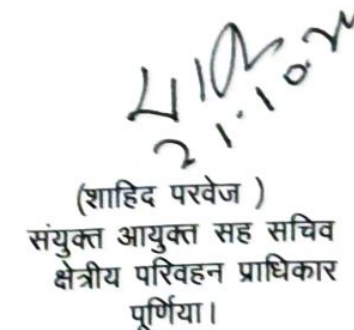 21.10.
(शाहिद परवेज )
संयुक्त आयुक्त सह सचिव
क्षेत्रीय परिवहन प्राधिकार
पूर्णिया।